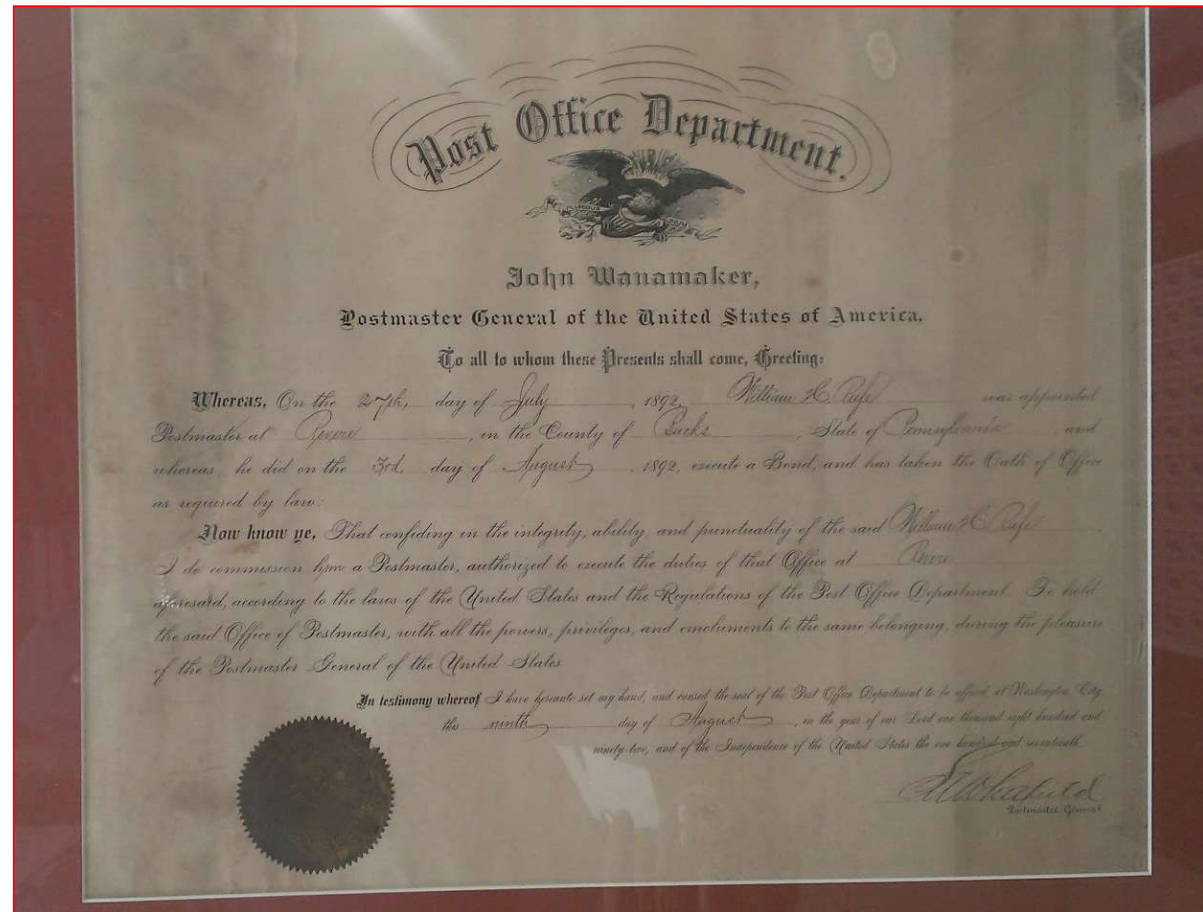 Post Office Department.
John Wanamaker,
Postmaster General of the United States of America.
To all to whom these Presents shall come, Greeting:
Whereas, On the 27th, day of July, 1892, William H. was appointed
Postmaster at Revere, in the County of Bucks, State of Pennsylvania and
whereas, he did on the 3rd, day of August, 1892, execute a Bond, and has taken the Oath of Office
as required by law:
Now know ye, That confiding in the integrity, ability, and punctuality of the said William H.
I do commission him a Postmaster, authorized to execute the duties of that Office at Revere
aforesaid, according to the laws of the United States and the Regulations of the Post Office Department. To hold
the said Office of Postmaster, with all the powers, privileges, and emoluments to the same belonging, during the pleasure
of the Postmaster General of the United States
In testimony whereof I have hereunto set my hand, and caused the seal of the Post Office Department to be affixed, at Washington City
this ninth day of August, in the year of our Lord one thousand eight hundred and
ninety-two, and of the Independence of the United States the one hundred and seventeenth.
Postmaster General